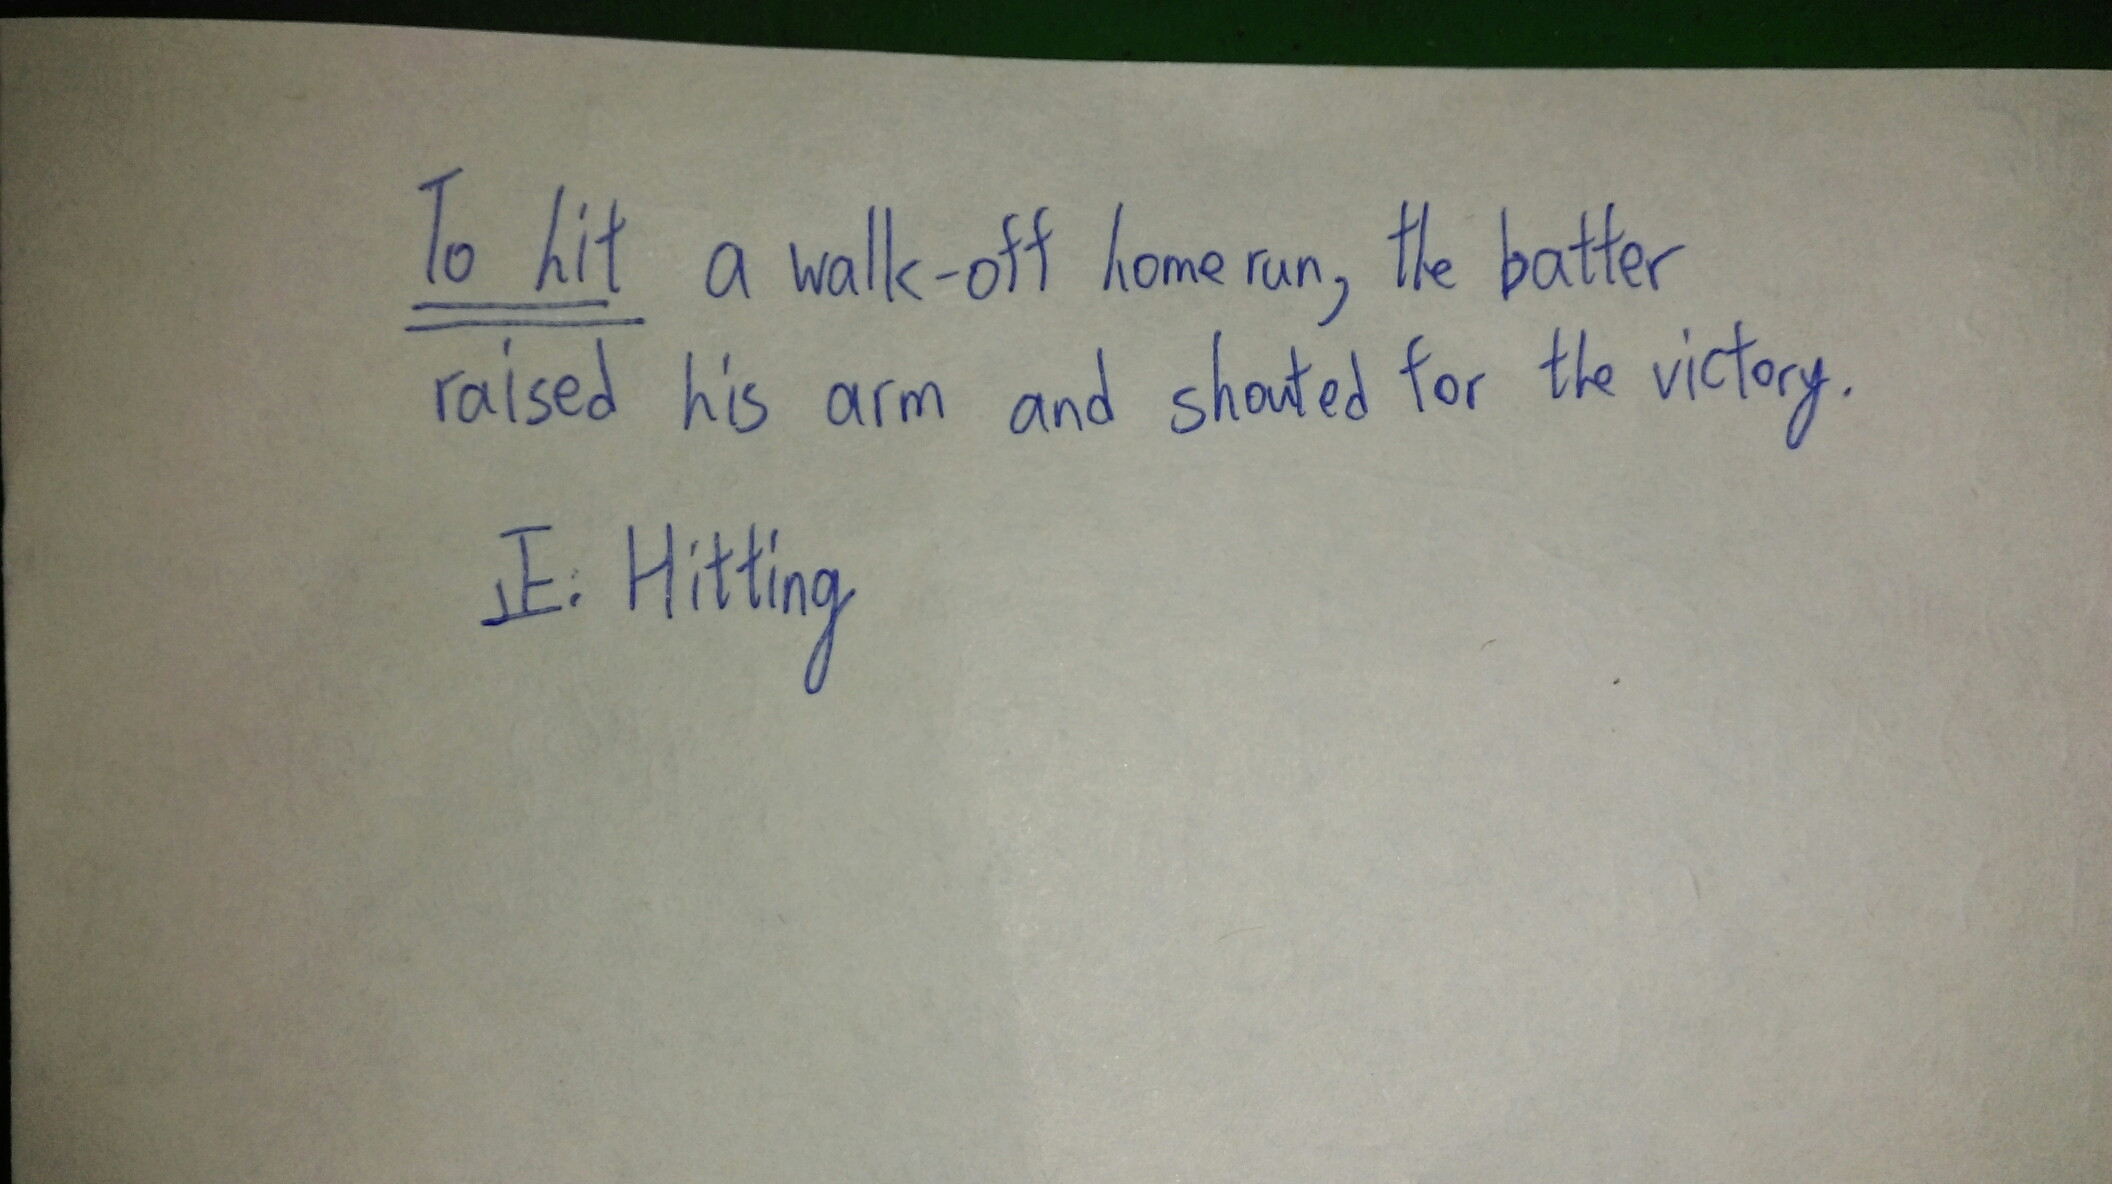 To hit a walk-off home run, the batter
raised his arm and shouted for the victory.
正: Hitting